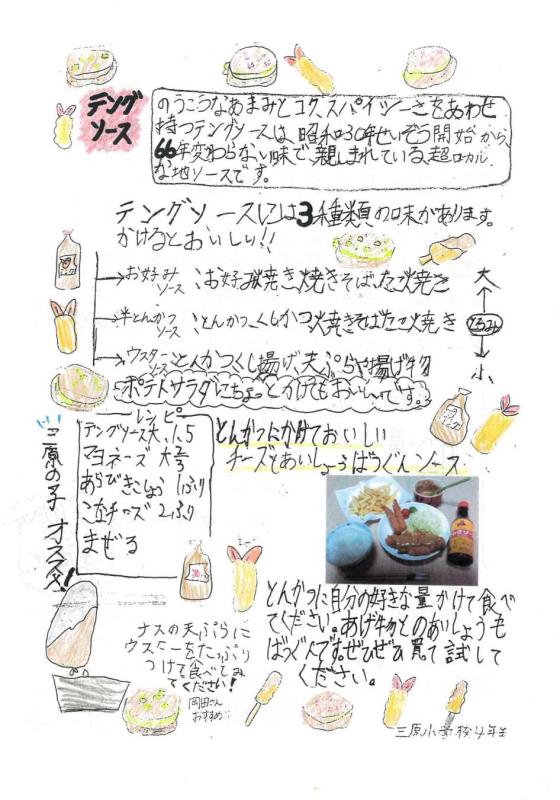 テングソース
のうこうなあまみとコク、スパイシーさをあわせ
持つテングソースは、昭和30年せいぞう開始から、
66年変わらない味で、親しまれている、超ローカル
な地ソースです。
テングソースには3種類の味があります。
かけるとおいしい!!
お好みソース:お好み焼き・焼きそば・たこ焼き
半とんかつソース:とんかつ・くしかつ・焼きそば・たこ焼き
ウスターソース:とんかつ・くし揚げ・天ぷらや揚げ物
大
とろみ
小
ポテトサラダにちょっとかけてもおいしいです。
三原の子オススメ!
レシピ
テングソース大1.5
マヨネーズ大2/3
あらびきこしょう1ふり
こなチーズ2ふり
まぜる
とんかつにかけておいしい
チーズとあいしょうばつぐんソース
とんかつに自分の好きな量かけて食べ
てください。あげ物とのあいしょうも
ばつぐんです。ぜひぜひ買って試して
ください。
ナスの天ぷらに
ウスターをたっぷり
つけて食べてみ
てください!
岡田さん
おすすめ
三原小学校4年生